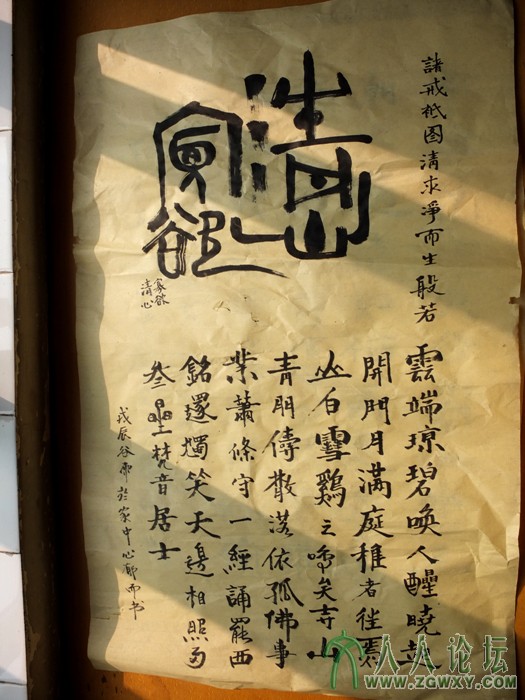 諸戒祇图清求淨而生般若
清心
寡欲
寡欲
清心
雲端琼碧唤人醒曉
開門月满庭稚者往
白雪鷄之鳴矣寺山
青朋儔散落依孤佛事
業蕭條守一經誦罷西
銘還燭笑天邊相照
叁星梵音居士
戎辰谷雨於家中心而书
人人论坛
www.zgwxy.com